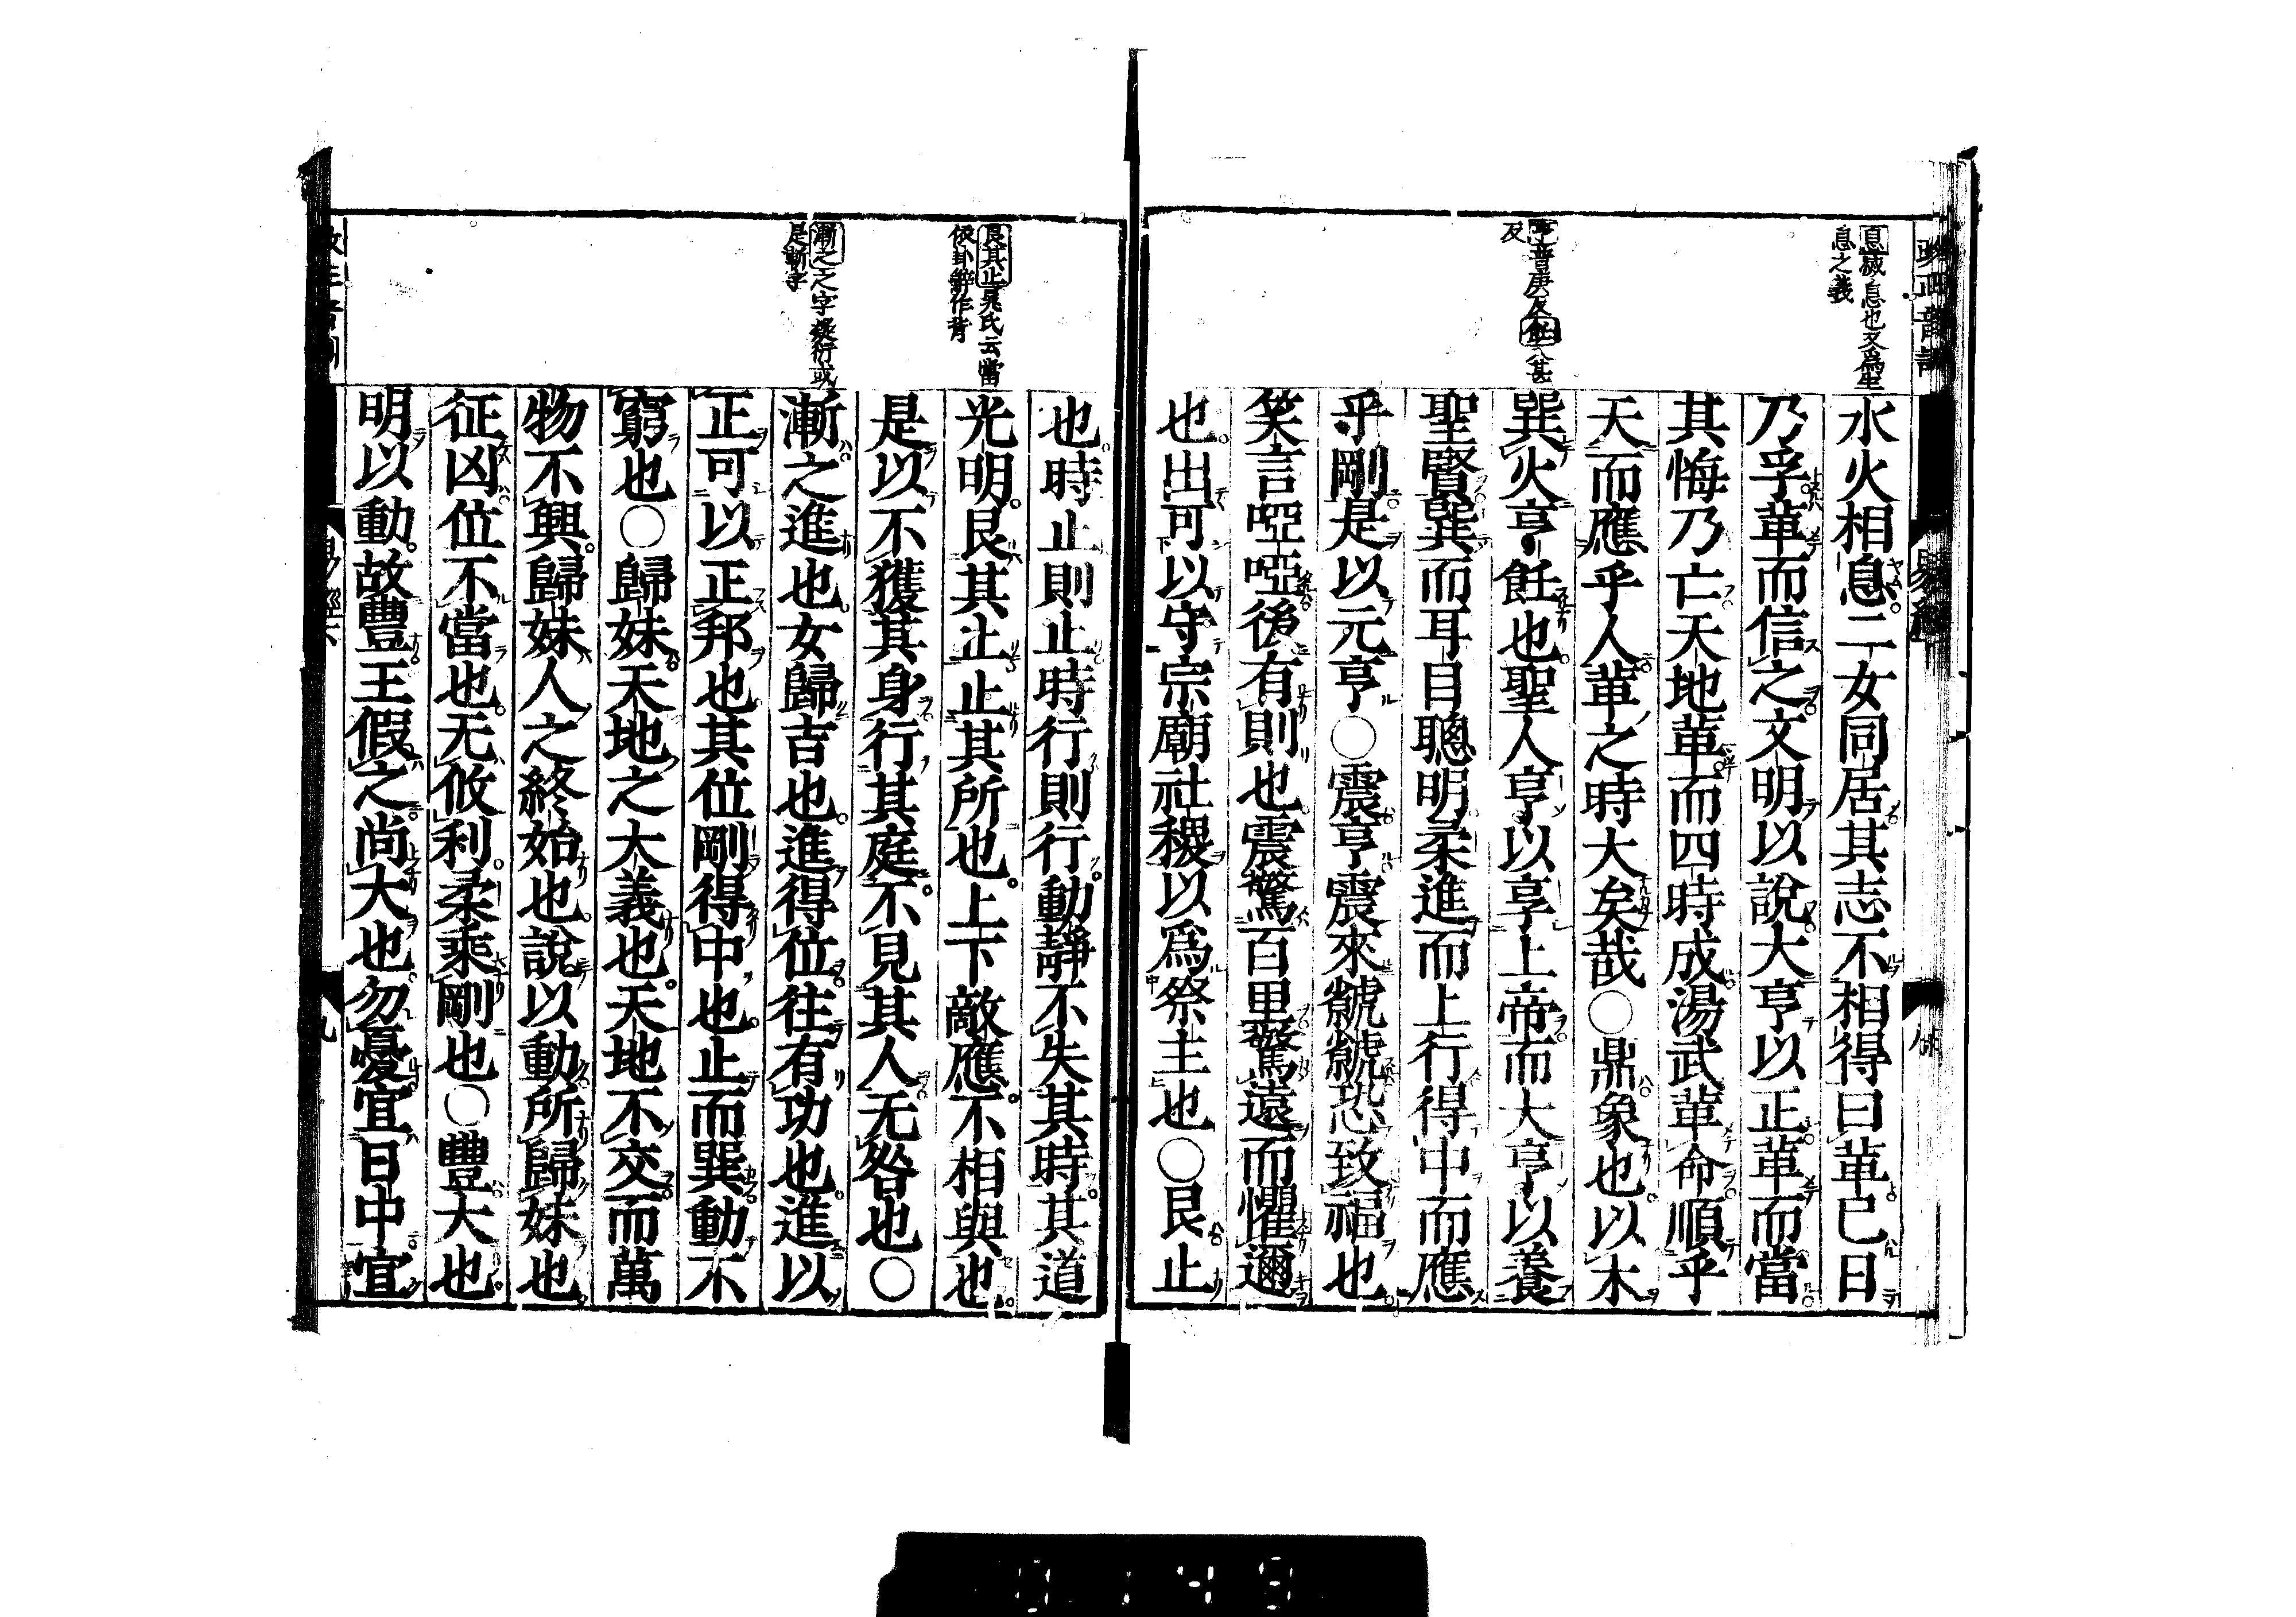 息滅息也又為生
息之義
亨普庚反飪入甚
反
水火相息二女同居其志不相得曰革已日
乃孚革而信之文明以說大亨以正革而當
其悔乃亡天地革而四時成湯武革命順乎
天而應乎人革之時大矣哉○鼎象也以木
巽火亨飪也聖人亨以享上帝而大亨以養
聖賢巽而耳目聰明柔進而上行得中而應
乎剛是以元亨○震亨震來虩虩恐致福也
笑言啞啞後有則也震驚百里驚遠而懼邇
也出可以守宗廟社稷以為祭主也○艮止
艮其止晁氏云當
依卦辭作背
漸之之字疑衍或
是漸字
也時止則止時行則行動靜不失其時其道
光明艮其止止其所也上下敵應不相與也
是以不獲其身行其庭不見其人无咎也○
漸之進也女歸吉也進得位往有功也進以
正可以正邦也其位剛得中也止而巽動不
窮也○歸妹天地之大義也天地不交而萬
物不興歸妹人之終始也說以動所歸妹也
征凶位不當也无攸利柔乘剛也○豐大也
明以動故豐王假之尚大也勿憂宜日中宜
易經下
九
0149